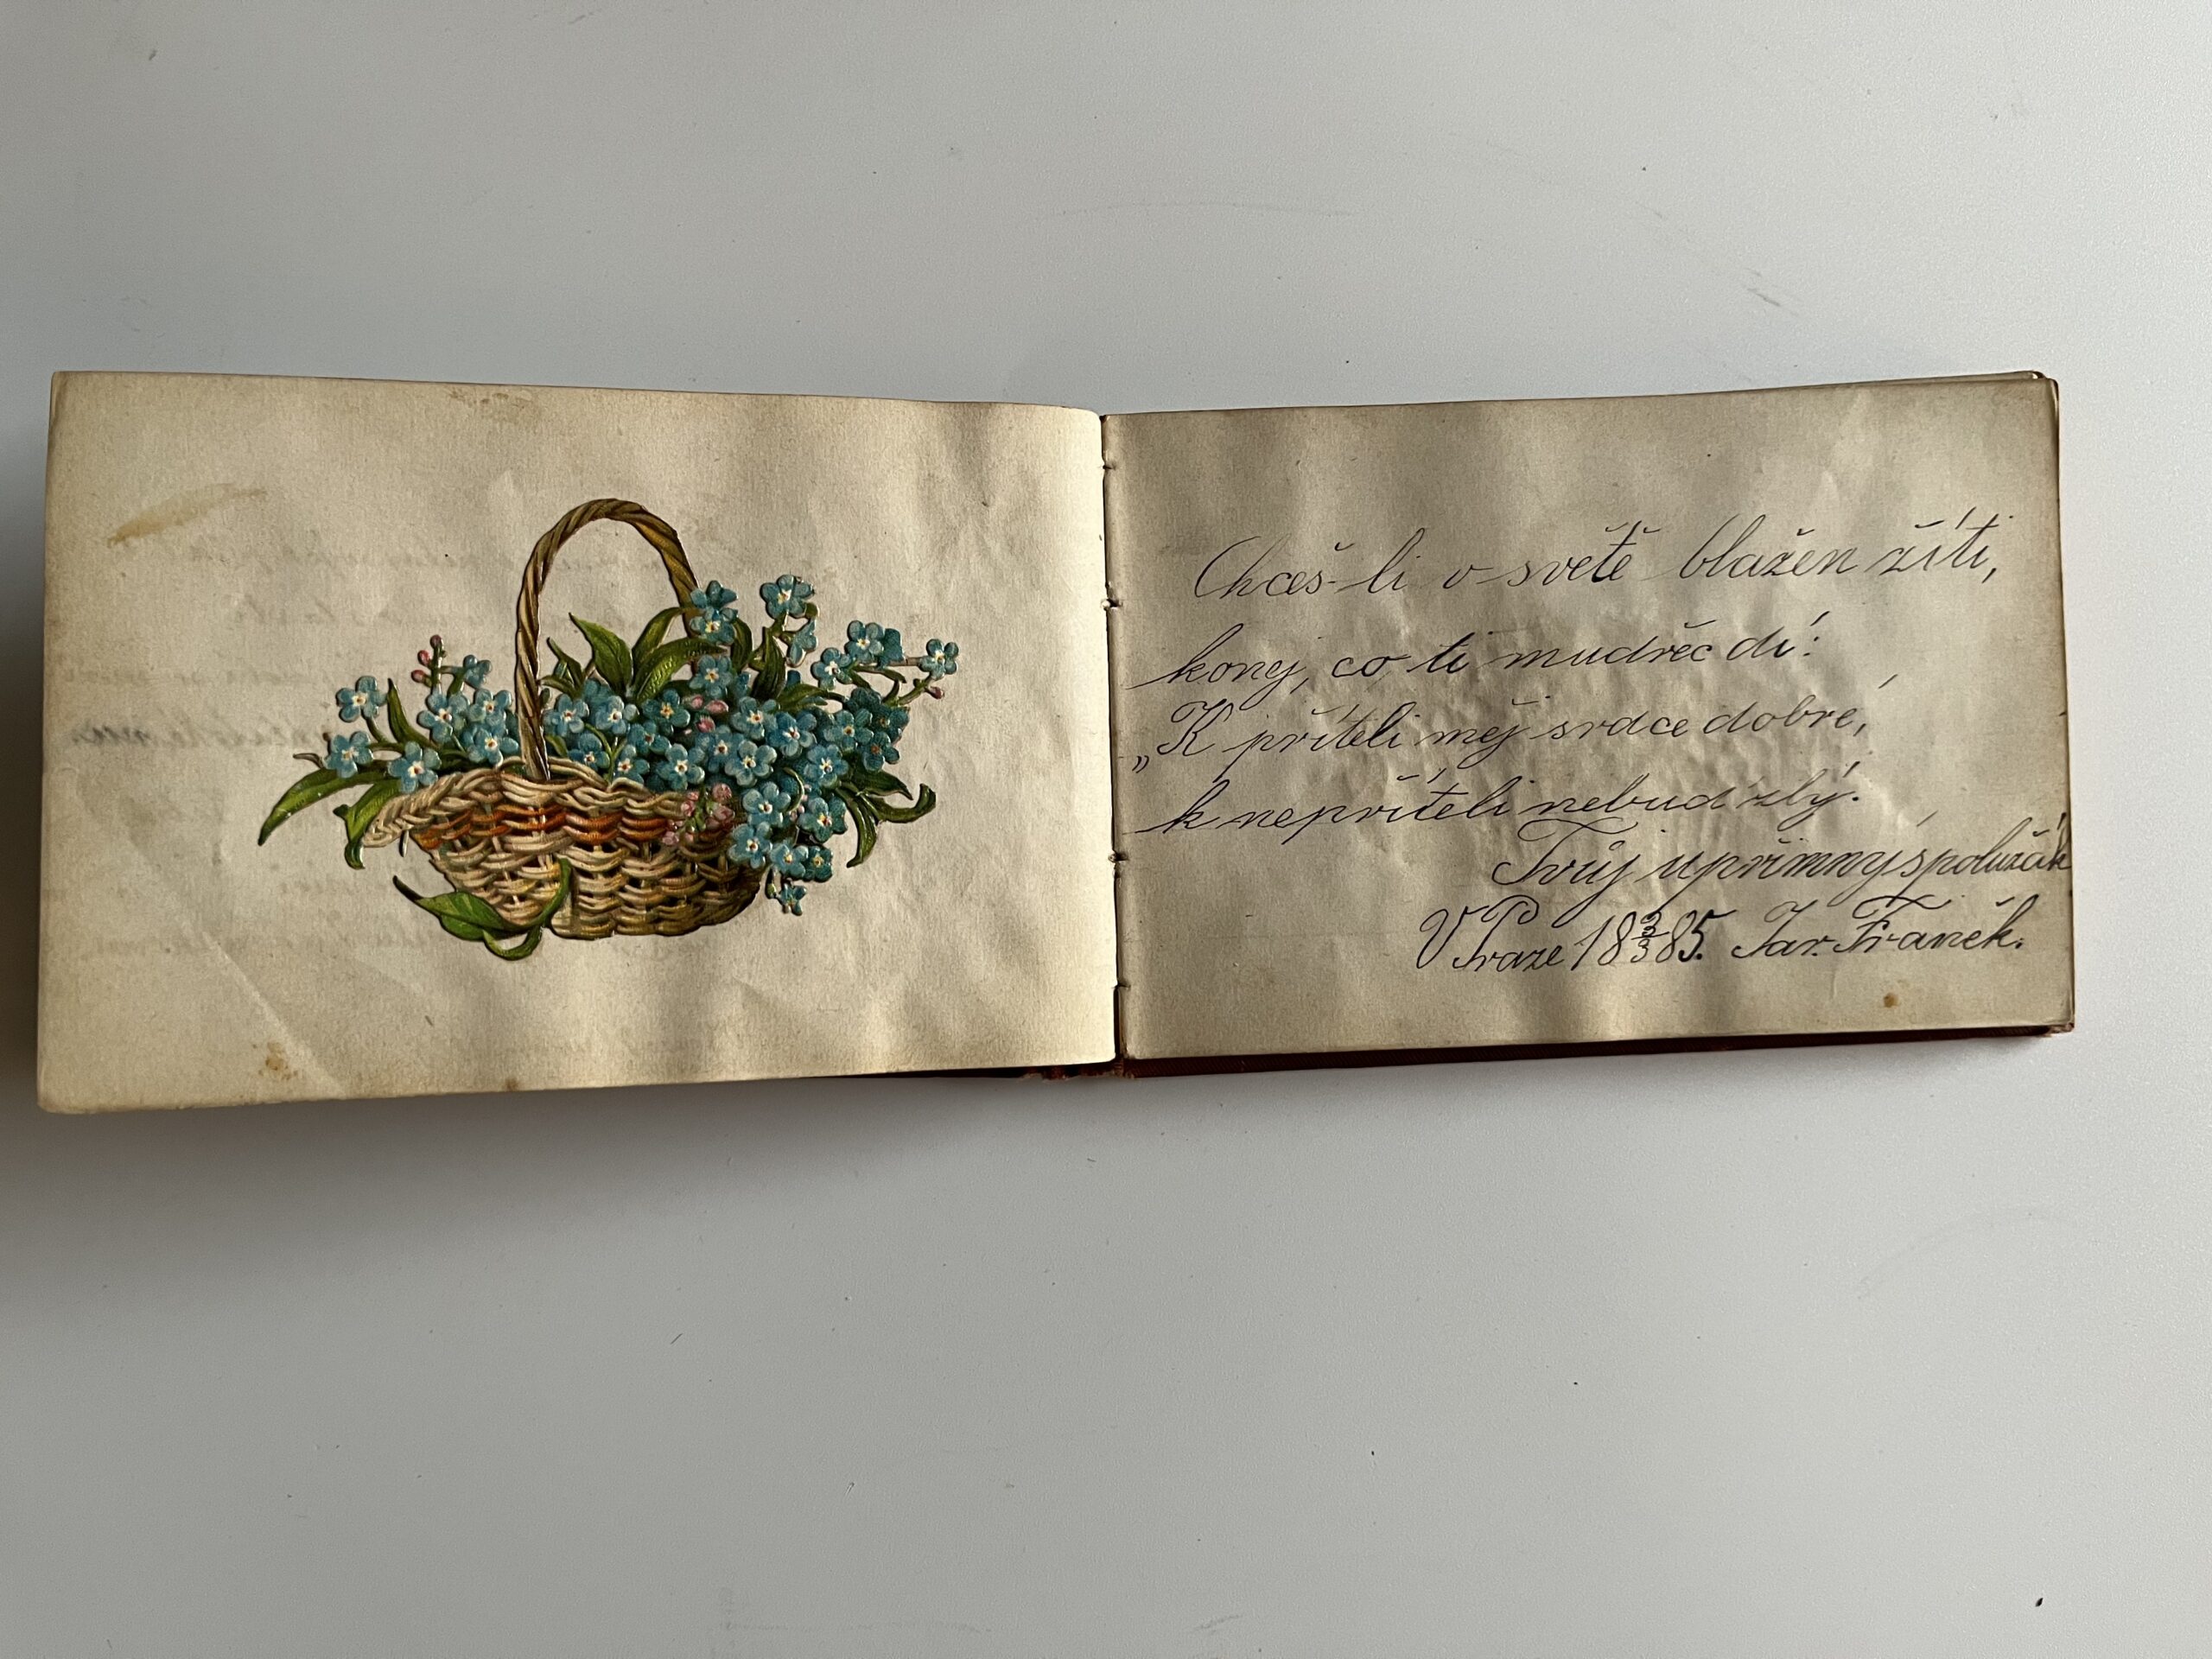 Chceš-li v světě blažen žíti,
konej, co ti mudřec dí:
„K příteli měj srdce dobré,
k nepříteli nebuď zlý.
Tvůj upřímný spolužák
V Praze 18 3/3 85. Jar. Franěk.